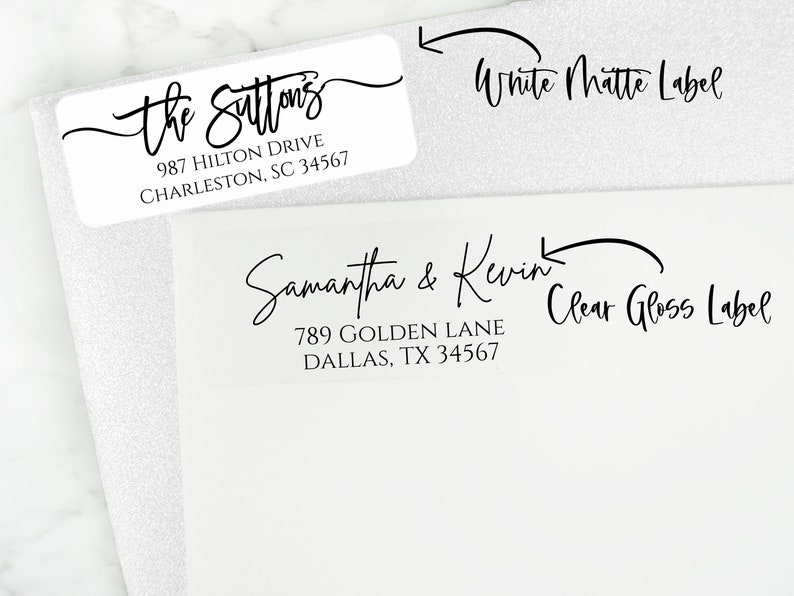 the Suttons
987 Hilton Drive
Charleston, SC 34567
White Matte Label
Samantha & Kevin
789 Golden Lane
Dallas, TX 34567
Clear Gloss Label